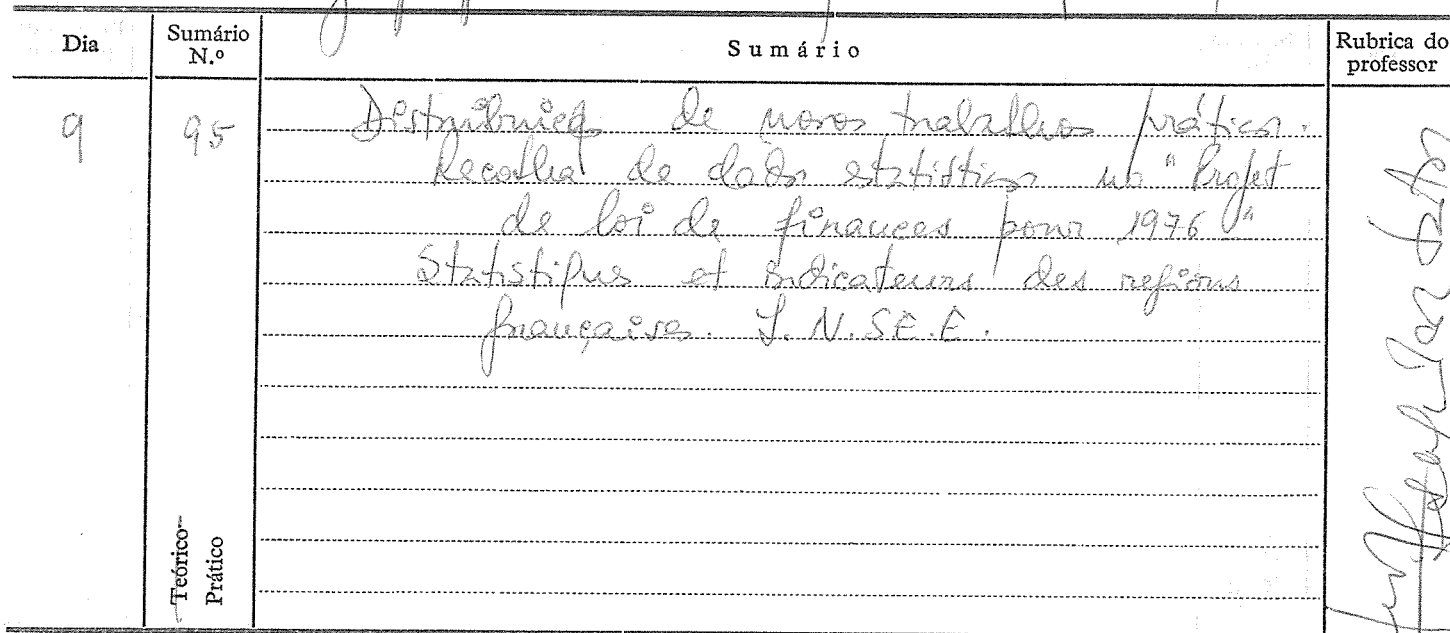 Dia
Sumário N.º
Sumário
Rubrica do professor
9
95
Distribuição de novos trabalhos práticos.
Recolha de dados estatísticos no "Projet
de loi de finances pour 1976"
Statistiques et indicateurs des régions
françaises. I.N.S.E.E.
Teórico-
Prático